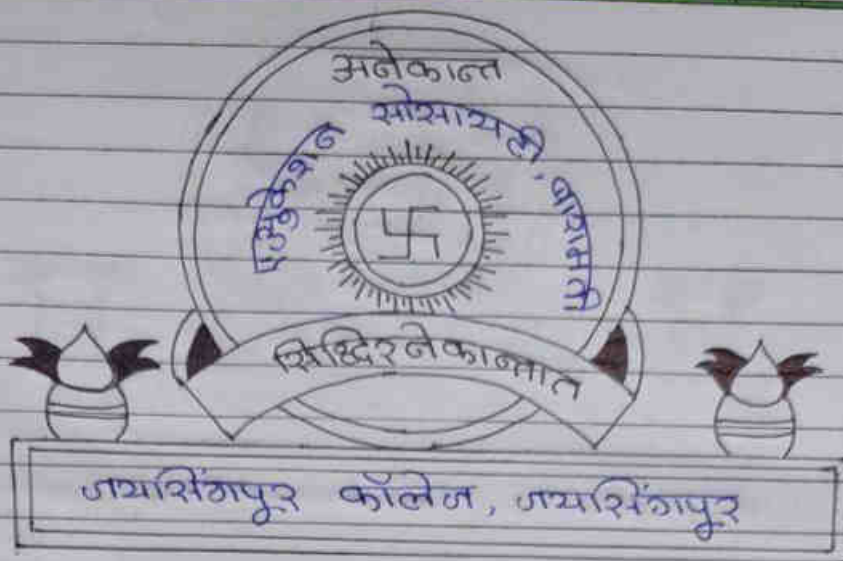 अनेकान्त
एज्युकेशन सोसायटी, बारामती
सिद्धिरनेकान्तात
जयसिंगपूर कॉलेज, जयसिंगपूर